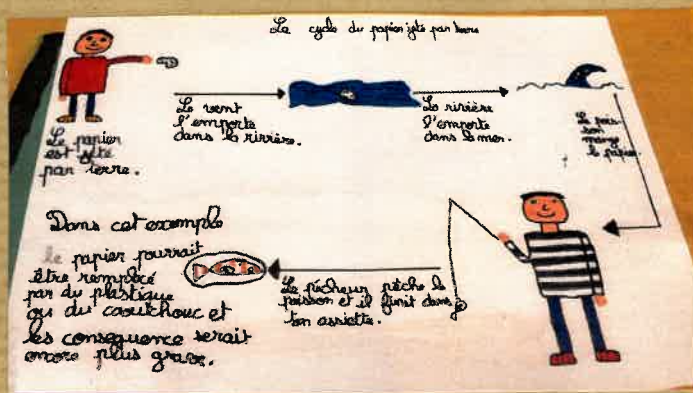 Le cycle du papier jeté par terre
Le papier
est jeté
par terre.
Le vent
l'emporte
dans la rivière.
La rivière
l'emporte
dans la mer.
Le pois-
son
mange
le papier.
Le pêcheur pêche le
poisson et il finit dans
ton assiette.
Dans cet exemple
le papier pourrait
être remplacé
par du plastique
ou du caoutchouc et
les consequence serait
encore plus grave.